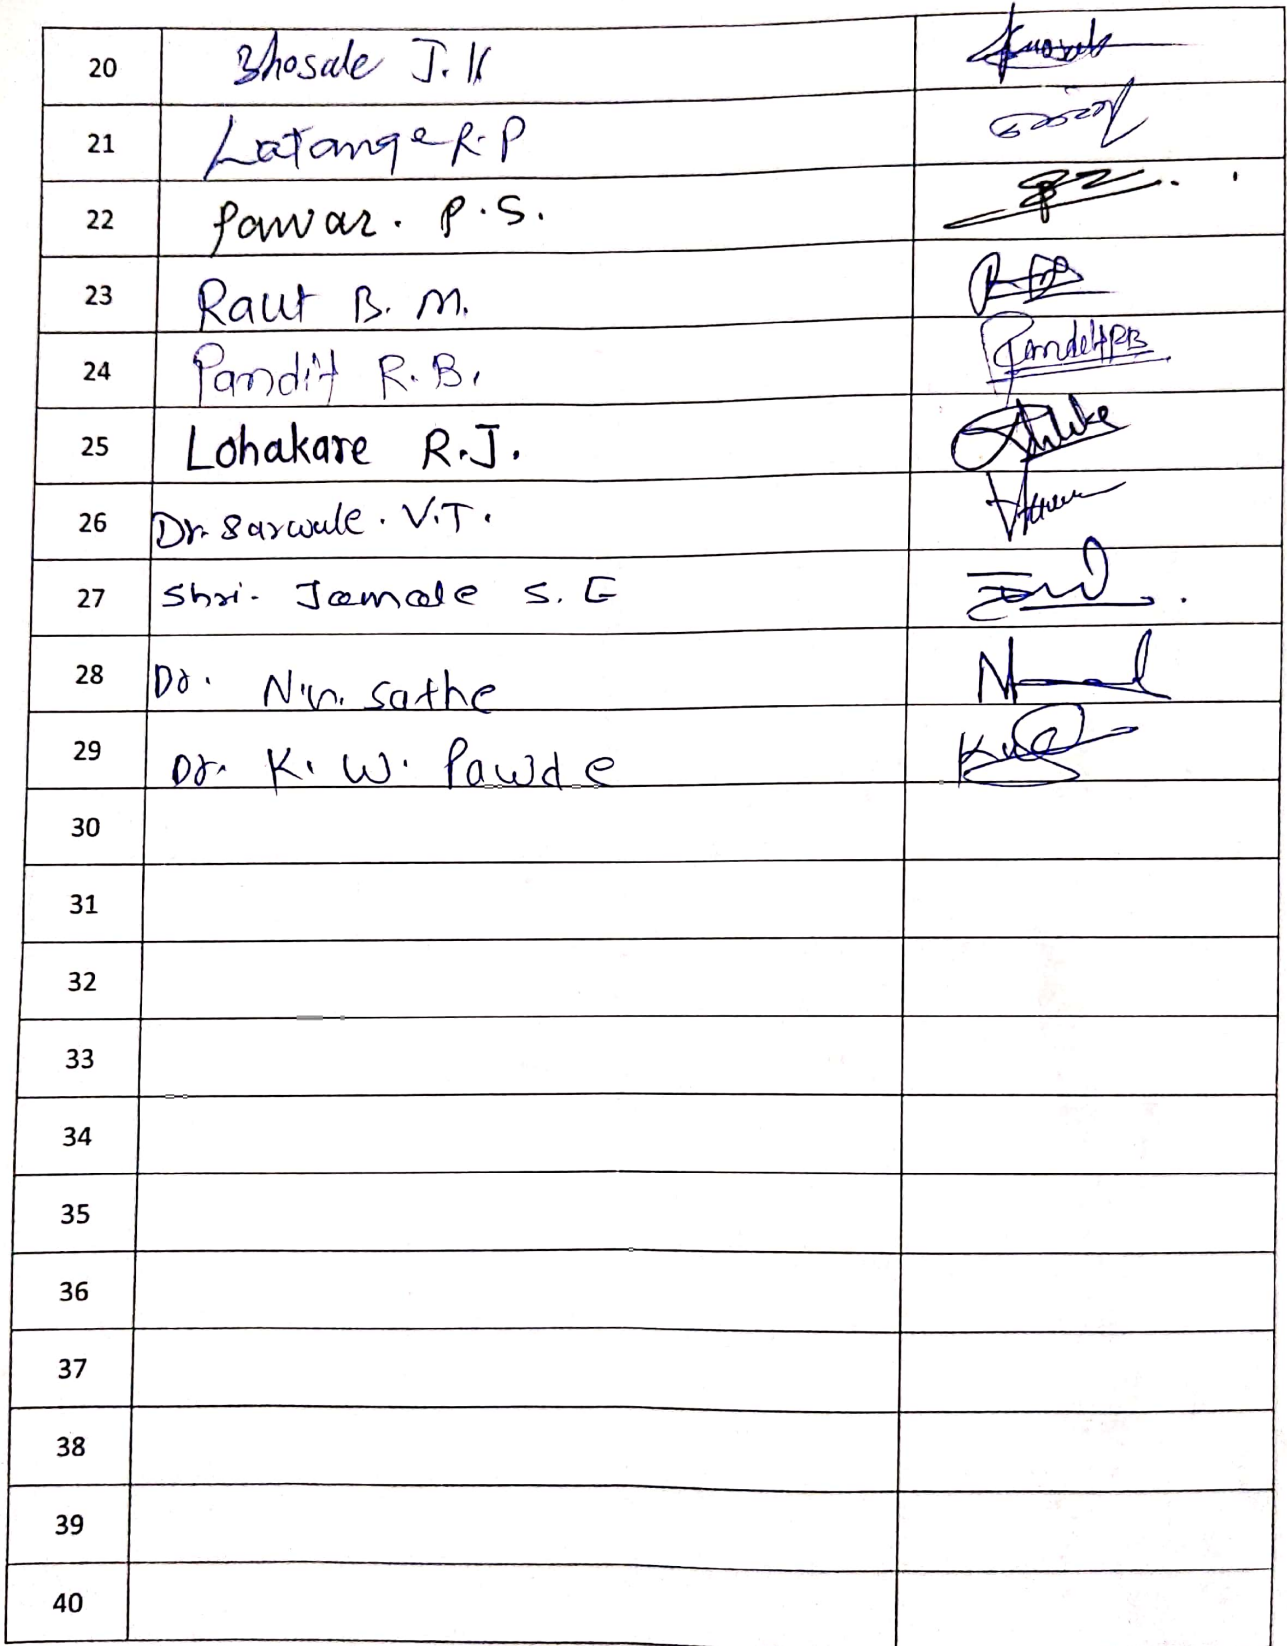 20 Bhosale J.K
21 Latange R.P
22 Pawar. P.S.
23 Raut B. M.
24 Pandit R.B. PanditRB
25 Lohakare R.J.
26 Dr. Sarwule. V.T.
27 Shri. Jamale S. G
28 Dr. N.N. Sathe
29 Dr. K. W. Pawde
30
31
32
33
34
35
36
37
38
39
40